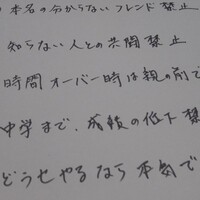 本名の分からないフレンド禁止
知らない人との共闘禁止
時間オーバー時は親の前で
中学まで、成績の低下禁
どうせやるなら本気で